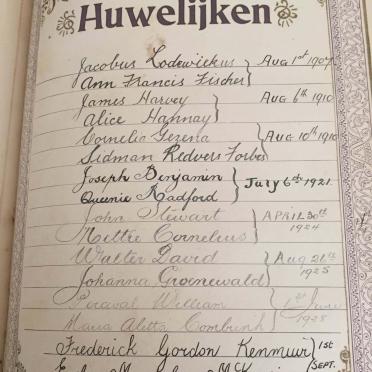 Huwelijken
Jacobus Lodewickus } Aug 1st 1907
Ann Francis Fischer
James Harvey } Aug 6th 1910
Alice Hannay
Cornelia Gezena } Aug 10th 1910
Sidman Redvers Forbes
Joseph Benjamin } July 6th 1921.
Queenie Radford
John Stewart } APRIL 30th
1924
Mettie Cornelius
Walter David } Aug 26th
1925
Johanna Groenewald
Perceval William } 1st June
1928
Maria Aletta Combrink
Frederick Gordon Kenmuir } 1st
SEPT.